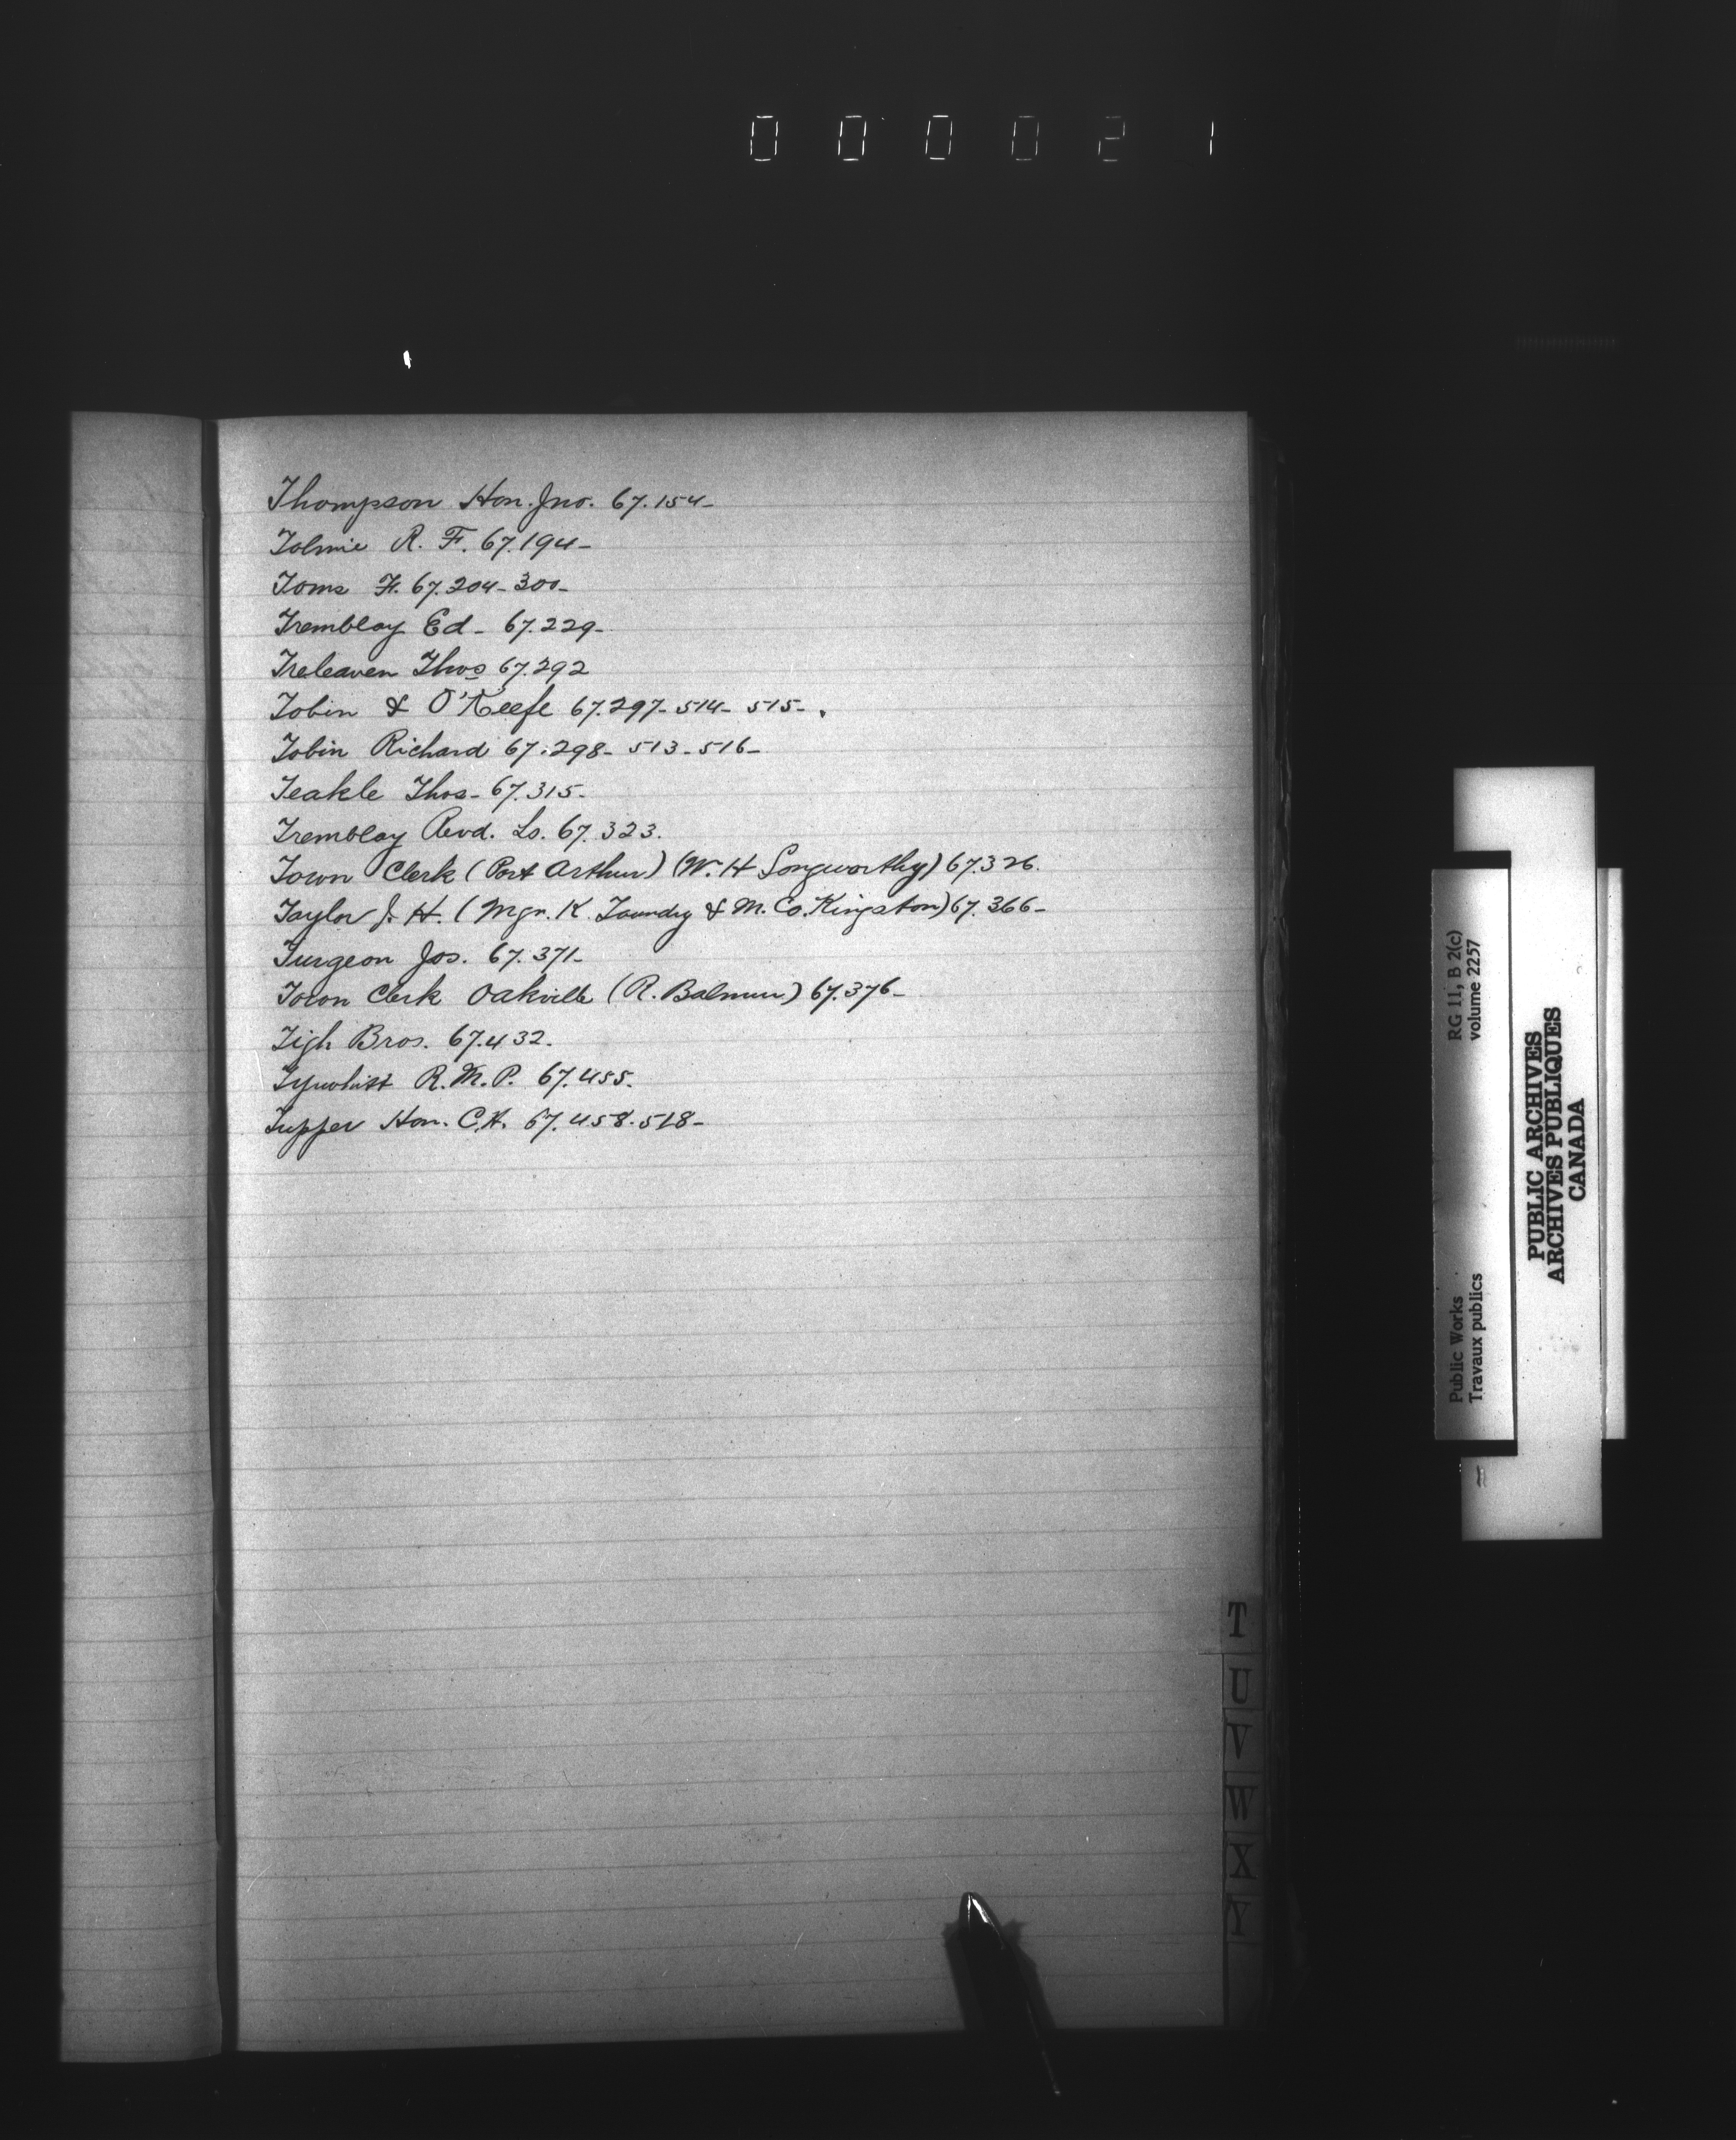 000021
Thompson Hon. Jno. 67.154-
Tolmie R. F. 67.194-
Toms F. 67.204-300-
Tremblay Ed- 67.229-
Treleaven Thos 67.292
Tobin & O'Keefe 67.297-514-515-.
Tobin Richard 67.298-513-516-
Teakle Thos- 67.315-
Tremblay Revd. Ls. 67.323.
Town Clerk (Port Arthur) (W. H Longworthy) 67.326.
Taylor J. H. (Mgr. K. Foundry & M. Co. Kingston) 67.366-
Turgeon Jos. 67.371-
Town Clerk Oakville (R. Balmer) 67.376-
Tigh Bros. 67.432.
R. M. P. 67.455.
Tupper Hon. C.H. 67.458-518-
T
U
V
W
X
Y
Public Works
Travaux publics
RG 11, B 2(c)
volume 2257
PUBLIC ARCHIVES
ARCHIVES PUBLIQUES
CANADA